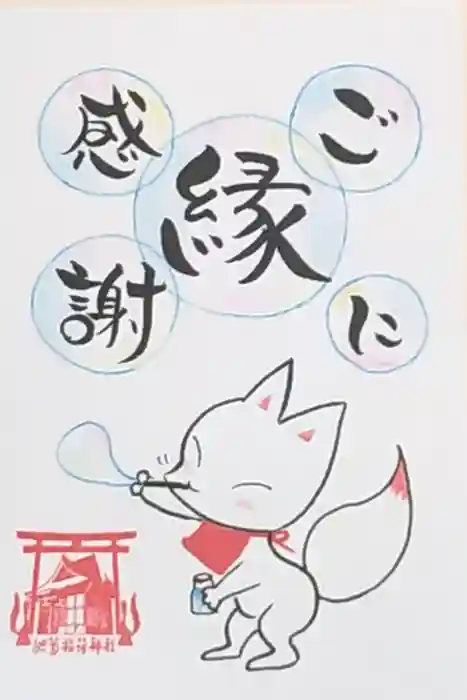 ご縁に
感謝
稲荷神社